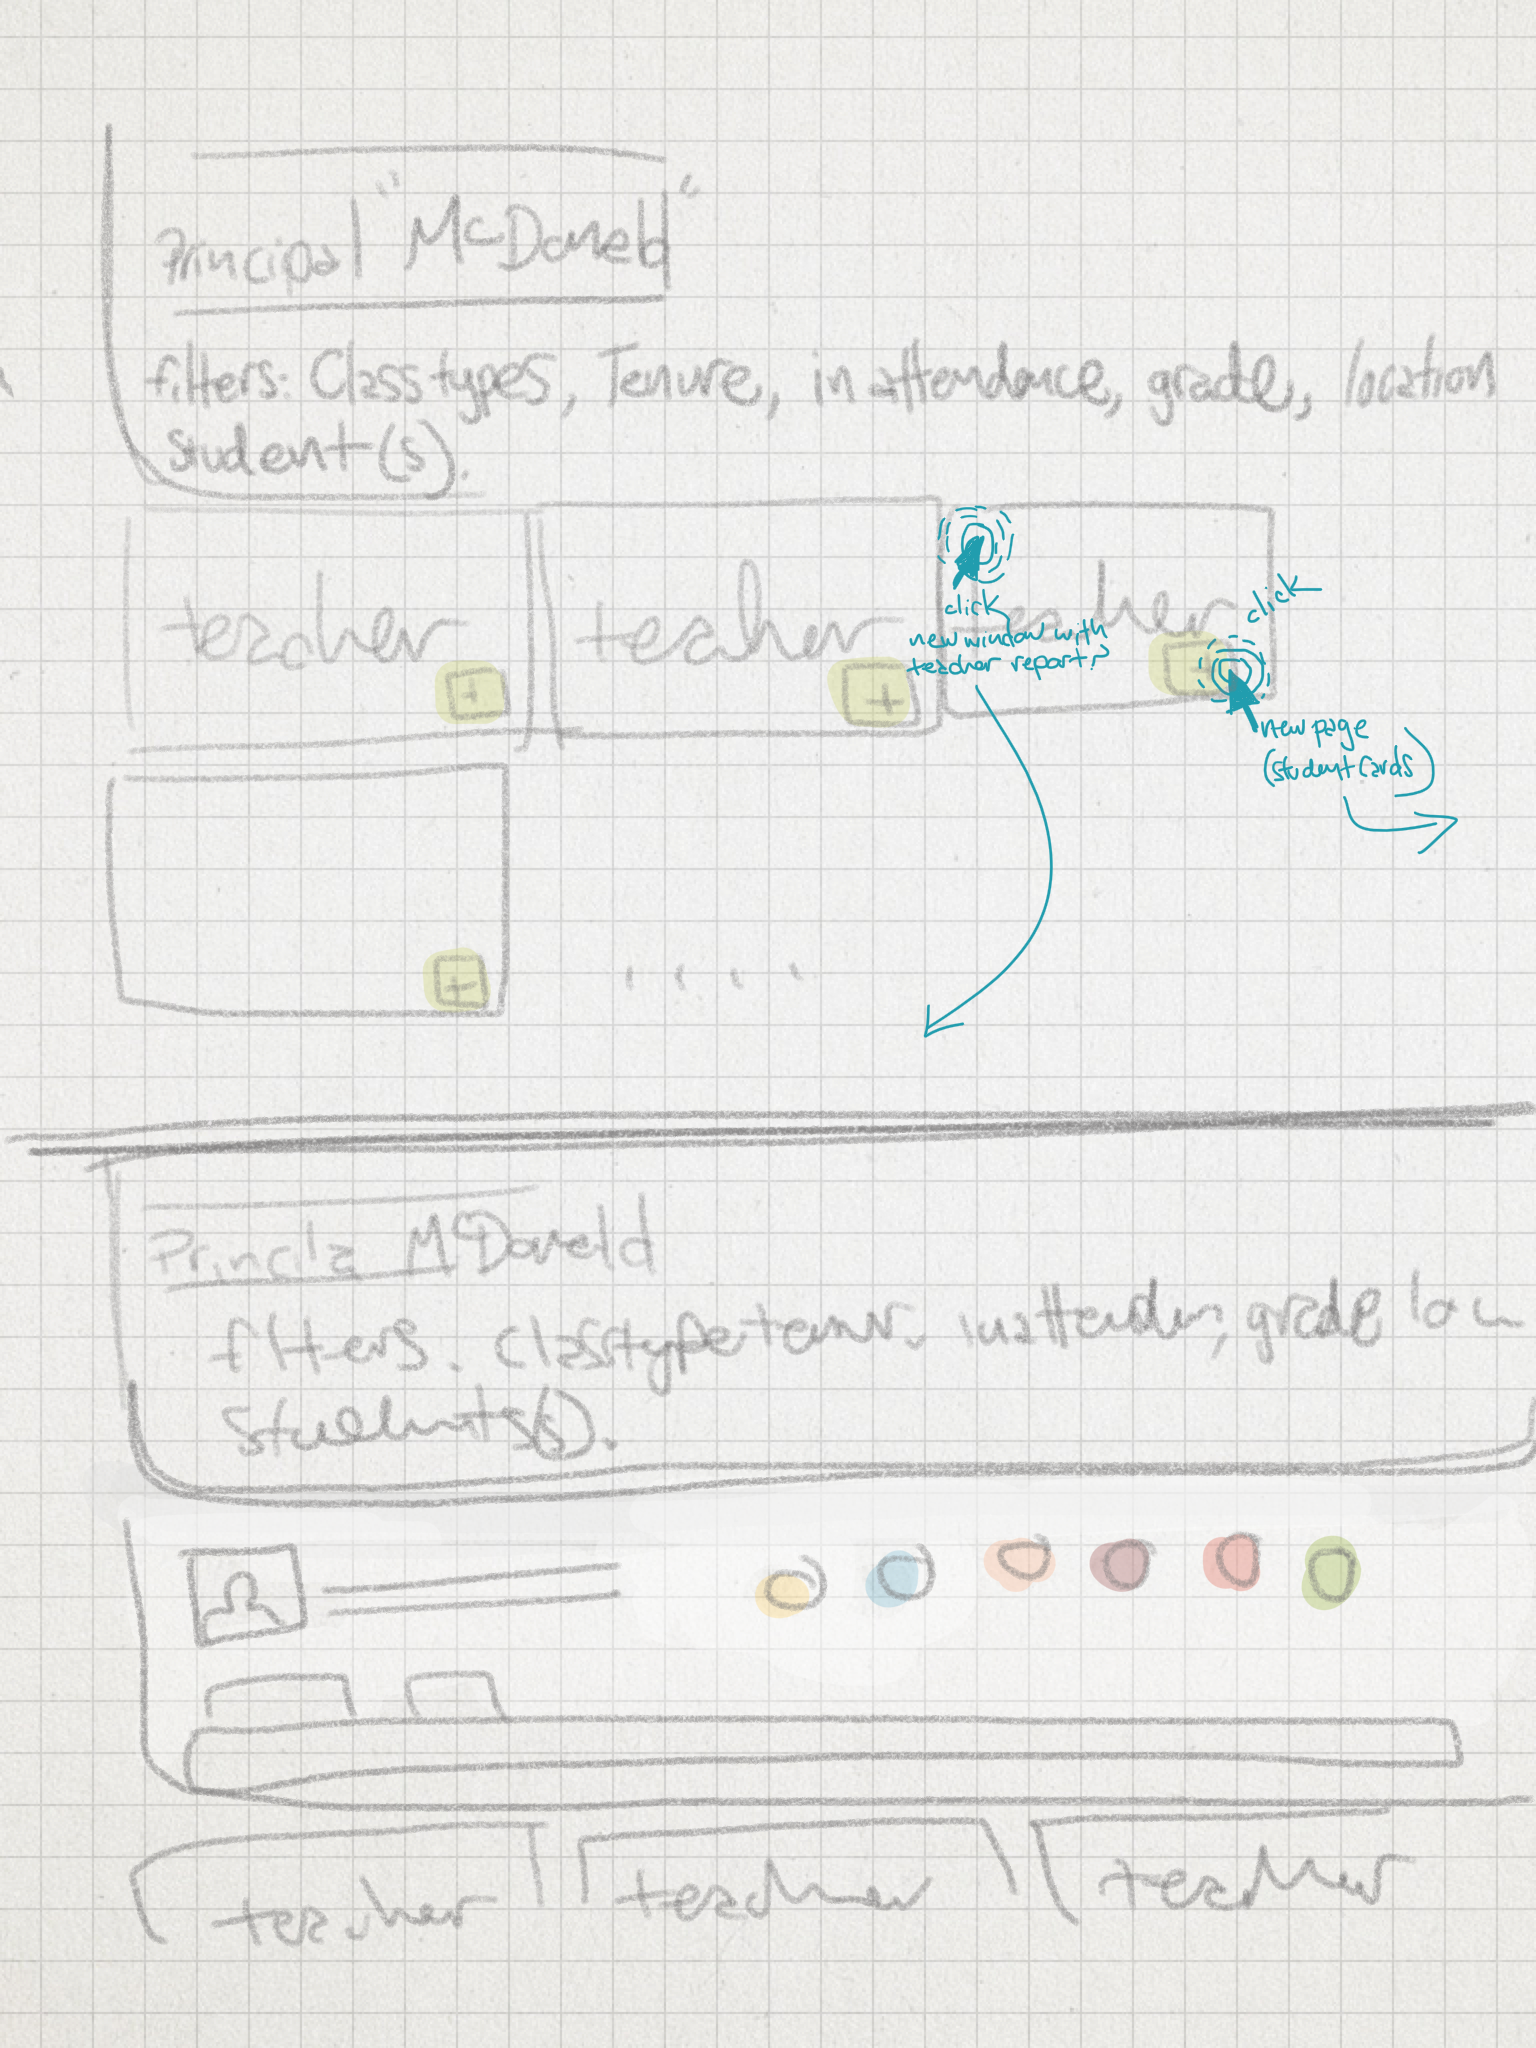 Principal "McDoneld"
filters: Class types, Tenure, in attendance, grade, location
student(s).
teacher teacher teacher
click
new window with
teacher report?
click
+ + 
new page
(student cards)
+
McDoneld
filters. Class type
grade
teacher teacher teacher